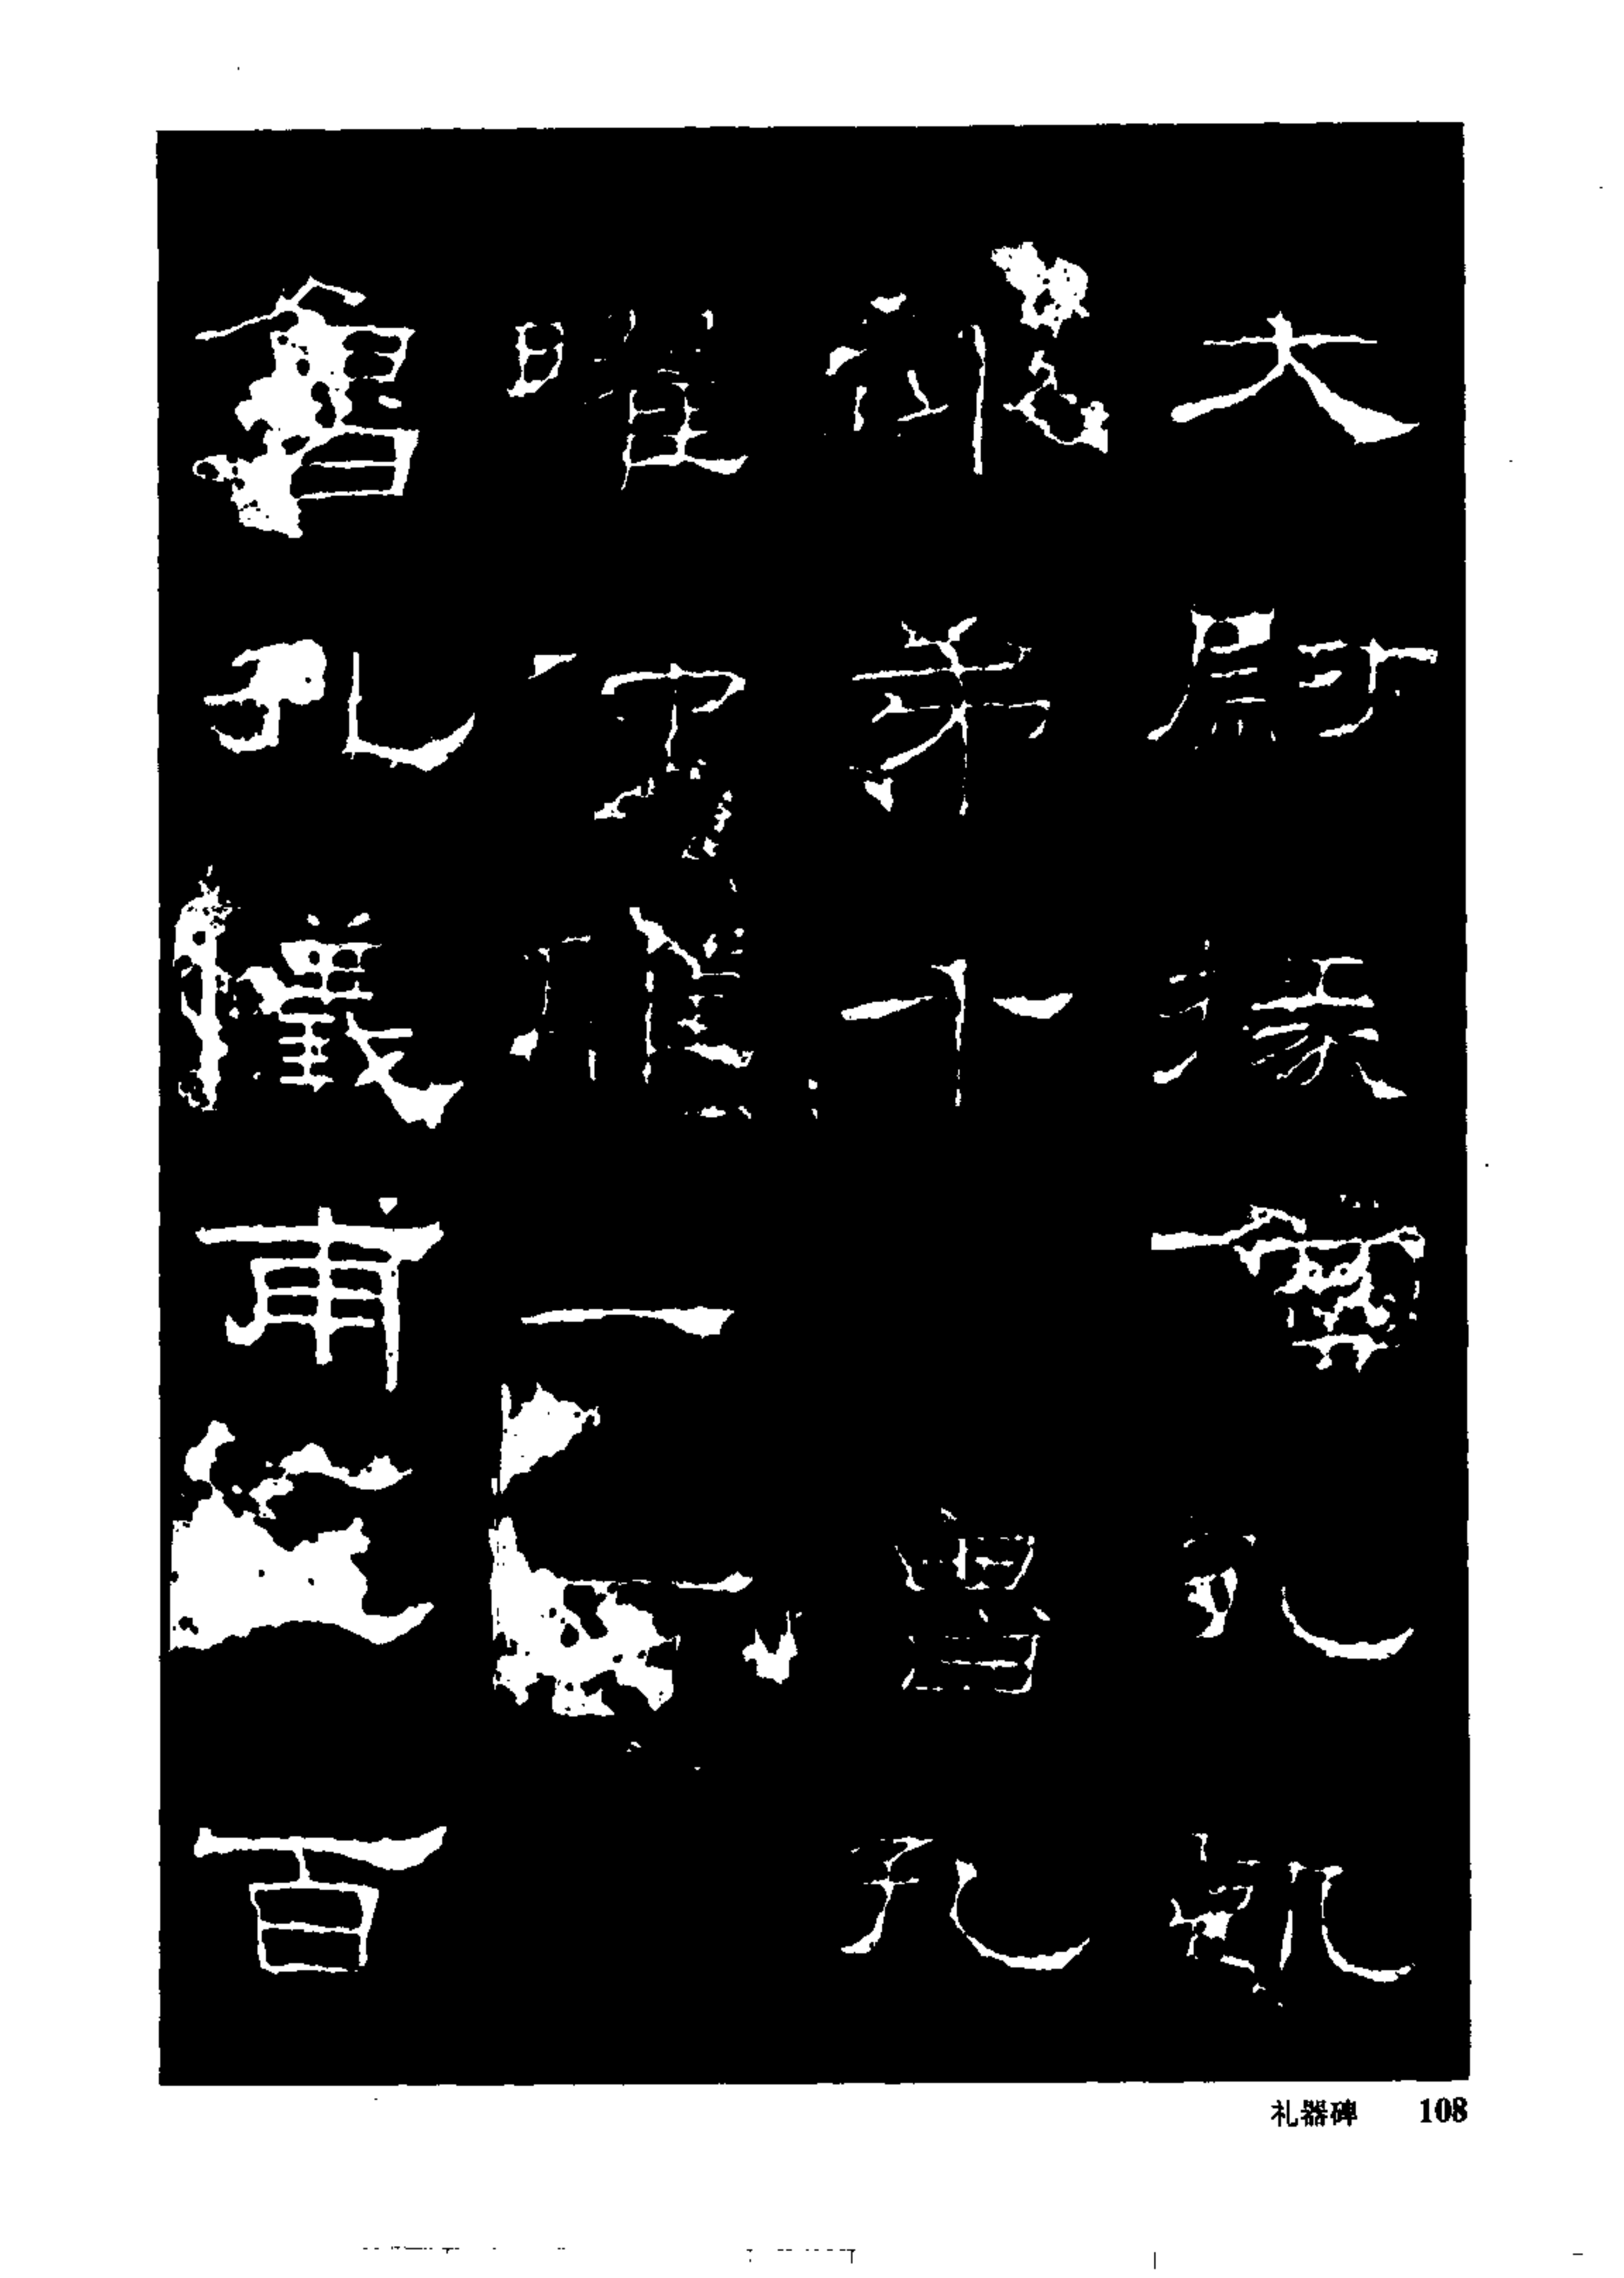 大尉掾魯孔凱
仲弟千魯孔
曜仲雅二百
魯孔儀甫二百
礼器碑 108